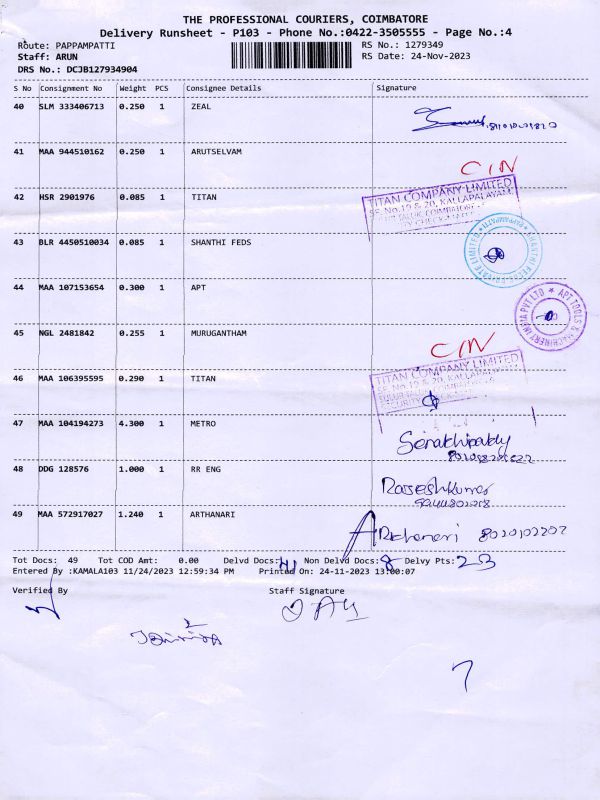 THE PROFESSIONAL COURIERS, COIMBATORE
Delivery Runsheet - P103 - Phone No.:0422-3505555 - Page No.:4
Route: PAPPAMPATTI
RS No.: 1279349
Staff: ARUN
RS Date: 24-Nov-2023
DRS No.: DCJB127934904
S No Consignment No Weight PCS Consignee Details Signature
40 SLM 333406713 0.250 1 ZEAL
41 MAA 944510162 0.250 1 ARUTSELVAM
CIN
TITAN COMPANY LIMITED
42 HSR 2901976 0.085 1 TITAN
SF. No.19 & 20, KALLAPALAYAM
43 BLR 4450510034 0.085 1 SHANTHI FEDS
44 MAA 107153654 0.300 1 APT
APT TOOLS & MACHINERY INDIA PVT LTD
45 NGL 2481842 0.255 1 MURUGANTHAM
CIN
TITAN COMPANY LIMITED
46 MAA 106395595 0.290 1 TITAN
47 MAA 104194273 4.300 1 METRO
48 DDG 128576 1.000 1 RR ENG
Rajeshkumar
49 MAA 572917027 1.240 1 ARTHANARI
Tot Docs: 49 Tot COD Amt: 0.00 Delvd Docs: 41 Non Delvd Docs: 8 Delvy Pts: 23
Entered By :KAMALA103 11/24/2023 12:59:34 PM Printed On: 24-11-2023 13:00:07
Verified By Staff Signature